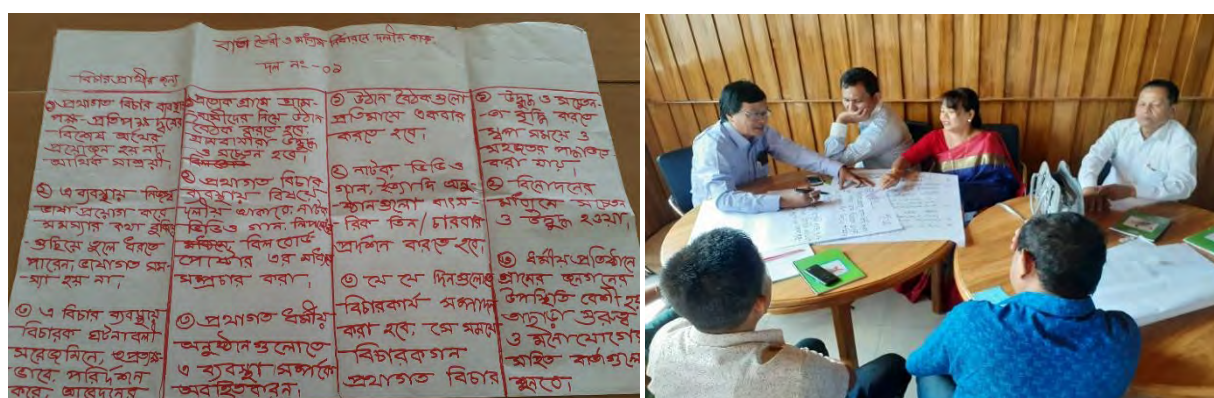 বার্তা তৈরী ও মাধ্যম নির্ধারনে দলীয় কাজ
দল নং -০৯
বিচার প্রার্থীর জন্য
① প্রথাগত বিচার ব্যবস্থায়
পক্ষ-প্রতিপক্ষ দুজনের
বিশেষ অর্থের
প্রয়োজন হয় না।
আর্থিক সাশ্রয়ী।
② এ ব্যবস্থায় নিজস্ব
ভাষা প্রয়োগ করে
সমস্যার কথা
গুছিয়ে তুলে ধরতে
পারেন, ভাষাগত সম-
স্যা হয় না।
③ এ বিচার ব্যবস্থায়
বিচারক ঘটনাবলী
সরেজমিনে, ও প্রত্যক্ষ-
ভাবে, পরিদর্শন
করে, আবেদনের
প্রত্যেক গ্রামে গ্রাম-
বাসীদের নিয়ে উঠান
বৈঠক করতে হবে।
গ্রামবাসীরা উদ্বুদ্ধ
ও সচেতন হবে।
② প্রথাগত বিচার
ব্যবস্থায় বিষয়ে
দলীয় থাকারে নাটক,
ভিডিও গান,
বিল বোর্ড
পোস্টার এর মাধ্যমে
সম্প্রচার করা।
③ প্রথাগত ধর্মীয়
অনুষ্ঠানগুলোতে
এ ব্যবস্থা সম্পর্কে
অবহিত করন।
① উঠান বৈঠকগুলো
প্রতিমাসে একবার
করতে হবে।
② নাটক, ভিডিও
গান, ইত্যাদি অনু-
ষ্ঠানগুলো বাৎস-
রিক তিন/চারবার
প্রদর্শন করতে হবে।
③ যে যে দিনগুলোতে
বিচারকার্য সম্পাদন
করা হবে, সে সময়ে
বিচারকগন
প্রথাগত বিচার
① উদ্বুদ্ধ ও সচেতন-
তা বৃদ্ধি করতে
স্বল্প সময়ে ও
করা যায়।
② বিনোদনের
মাধ্যমে সচেতন
ও উদ্বুদ্ধ হওয়া।
③ ধর্মীয় প্রতিষ্ঠানে
গ্রামের জনগনের
উপস্থিতি বেশী হয়
তাছাড়া গুরুত্ব
ও মনোযোগের
সহিত কথাগুলো
শুনবে।